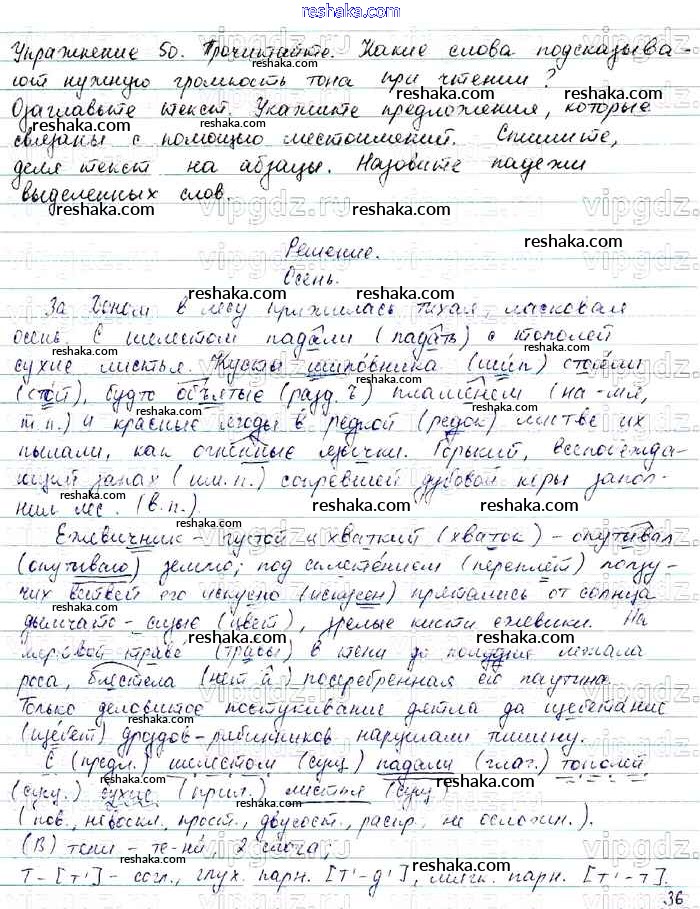 reshaka.com
Упражнение 50. Прочитайте. Какие слова подсказыва-
ют нужную громкость тона при чтении?
Озаглавьте текст. Укажите предложения, которые
связаны с помощью местоимений. Спишите,
деля текст на абзацы. Назовите падежи
выделенных слов.
Решение.
Осень.
За Доном в лесу прижилась тихая, ласковая
осень. С шелестом падали (падать) с тополей
сухие листья. Кусты шиповника (шип) стояли
(стой), будто объятые (разд. ъ) пламенем (на -мя,
т.п.) и красные ягоды в редкой (редок) листве их
пылали, как огненные язычки. Горький, всепобежда-
ющий запах (им.п.) сопревшей дубовой коры запол-
нил лес. (в.п.).
Ежевичник - густой и хваткий (хваток) - опутывал
(опутываю) землю; под сплетением (переплёт) ползу-
чих ветвей его искусно (искусен) прятались от солнца
дымчато-сизые (цвет), зрелые кисти ежевики. На
мёртвой траве (травы) в тени до полудня лежала
роса, блестела посеребренная ею паутина.
Только деловитое постукивание дятла да щебетание
(щебет) дроздов-рябинников нарушали тишину.
С (предл.) шелестом (сущ) падали (глаг.) тополей
(сущ.) сухие (прил.) листья (сущ)
(пов., невоскл., прост., двусост., распр., не осложн.).
(В) тени - те-ни 2 слога;
Т - [т'] - согл., глух. парн. [т'-д'], мягк. парн. [т'-т].
36